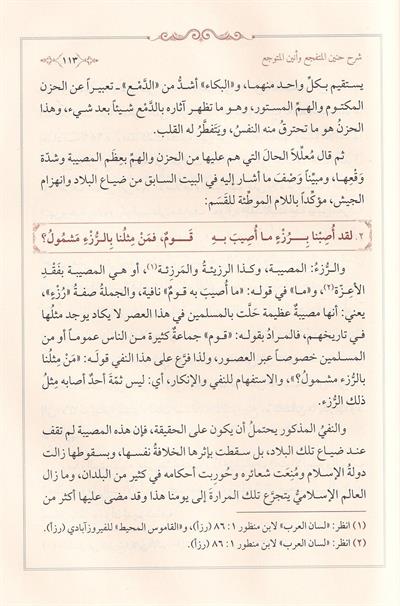 شرح حنين المتفجع وأنين المتوجع
١١٣
يستقيم بكلِّ واحد منهما، و«البكاء» أشدُّ من «الدَّمْع» ـ تعبيراً عن الحزن
المكتوم والهمِّ المستور، وهو ما تظهر آثاره بالدَّمْع شيئاً بعد شيء، وهذا
الحزنُ هو ما تحترقُ منه النفسُ، ويَتَفطَّرُ له القلب.
ثم قال مُعلِّلاً الحالَ التي هم عليها من الحزن والهمِّ بعِظَم المصيبة وشدّة
وَقْعِها، ومبيِّناً وَصْفَ ما أشار إليه في البيت السابق من ضياع البلاد وانهزام
الجيش، مؤكّداً باللام الموطِّئة للقَسَم:
٢. لقد أُصِبْنا بِـرُزْءٍ مـا أُصِيبَ بـهِ قَـومٌ، فمَنْ مِثلُنا بـالرُّزْءِ مَشمُولُ؟
والـرُّزءُ: المصيبة، وكذا الرزيئةُ والمَرزِئة(١)، أو هي المصيبة بفَقْدِ
الأعِزّة(٢)، و«ما» في قوله: «ما أُصِيبَ به قومٌ» نافية، والجملة صفة «رُزْءٍ»،
يعني: أنها مصيبةٌ عظيمة حَلَّت بالمسلمين في هذا العصر لا يكاد يوجد مثلُها
في تاريخهم، فالمرادُ بقوله: «قوم» جماعةٌ كثيرة من الناس عموماً أو من
المسلمين خصوصاً عبر العصور، ولذا فرَّع على هذا النفي قولَه: «مَنْ مِثلُنا
بالرُّزء مشمولُ؟»، والاستفهام للنفي والإنكار، أي: ليس ثمّةَ أحدٌ أصابه مِثلُ
ذلك الرُّزء.
والنفيُ المذكور يحتملُ أن يكون على الحقيقة، فإن هذه المصيبة لم تقف
عند ضياع تلك البلاد، بل سقطت بإثرها الخلافةُ نفسها، وبسقوطها زالت
دولةُ الإسلام ومُنِعَت شعائره وحُورِبت أحكامه في كثير من البلدان، وما زال
العالم الإسلاميُّ يتجرَّع تلك المرارةَ إلى يومنا هذا وقد مضى عليها أكثر من
(١) انظر: «لسان العرب» لابن منظور ١: ٨٦ (رزأ)، و«القاموس المحيط» للفيروزآبادي (رزأ).
(٢) انظر: «لسان العرب» لابن منظور ١: ٨٦ (رزأ).